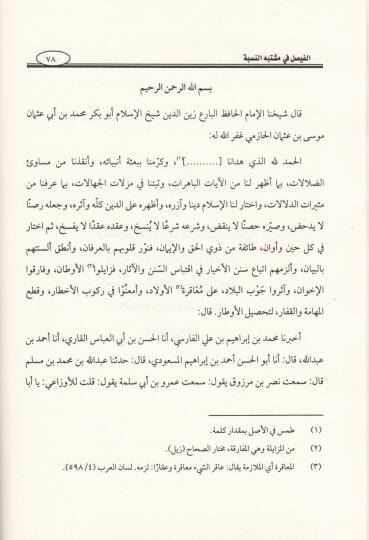 الفيصل في مشتبه النسبة
٧٨
بسم الله الرحمن الرحيم
قال شيخنا الإمام الحافظ البارع زين الدين شيخ الإسلام أبو بكر محمد بن أبي عثمان
موسى بن عثمان الحازمي غفر الله له:
الحمد لله الذي هدانا [..........](١)، وكرّمنا ببعثة أنبيائه، وأنقذنا من مساوئ
الضلالات، بما أظهر لنا من الآيات الباهرات، وثبتنا في مزلات الجهالات، بما عرفنا من
مثيرات الدلالات، واختار لنا الإسلام دينا وآزره، وأظهره على الدين كلّه وآثره، وجعله رصنًا
لا يدحض، وصيّره حصنًا لا ينقض، وشرعه شرعًا لا يُنسخ، وعقده عقدًا لا يفسخ، ثم اختار
في كل حين وأوان، طائفة من ذوي الحق والإيمان، فنوّر قلوبهم بالعرفان، وأنطق ألسنتهم
بالبيان، وألزمهم اتباع سنن الأخيار في اقتباس السّنن والآثار، فزايلوا(٢) الأوطان، وفارقوا
الإخوان، وآثروا جَوْب البلاد، على مُعَاقرة(٣) الأولاد، وأمعنُوا في ركوب الأخطار، وقطع
المهامة والقفار، لتحصيل الأوطار. قال:
أخبرنا محمد بن إبراهيم بن علي الفارسي، أنا الحسن بن أبي العباس القاري، أنا أحمد بن
عبدالله، قال: أنا أبو الحسن أحمد بن إبراهيم المسعودي، قال: حدثنا عبدالله بن محمد بن مسلم
قال: سمعت نصر بن مرزوق يقول: سمعت عمرو بن أبي سلمة يقول: قلت للأوزاعي: يا أبا
(١) طمس في الأصل بمقدار كلمة.
(٢) من المزايلة وهي المفارقة، مختار الصحاح (زيل).
(٣) المعاقرة أي الملازمة يقال: عاقر الشيء معاقرة وعقارًا: لزمه. لسان العرب (٥٩٨/٤).